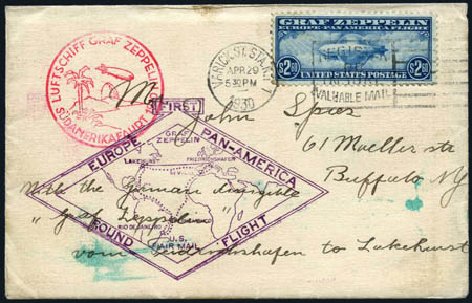 GRAF ZEPPELIN
EUROPE-PAN AMERICA FLIGHT
$2.60 $2.60
UNITED STATES POSTAGE
LUFTSCHIFF GRAF ZEPPELIN
SÜDAMERIKAFAHRT
VARICK ST. STA. N.Y.
APR 29
5 30 PM
1930
REGISTER
VALUABLE MAIL
FIRST
M John Spies
61 Moeller str
Buffalo NY
EUROPE PAN-AMERICA
ROUND FLIGHT
GRAF
ZEPPELIN
LAKEHURST
FRIEDRICHSHAFEN
RIO DE JANEIRO
U.S.
AIR MAIL
With the German dirigible
"Graf Zeppelin"
vom Friedrichshafen to Lakehurst